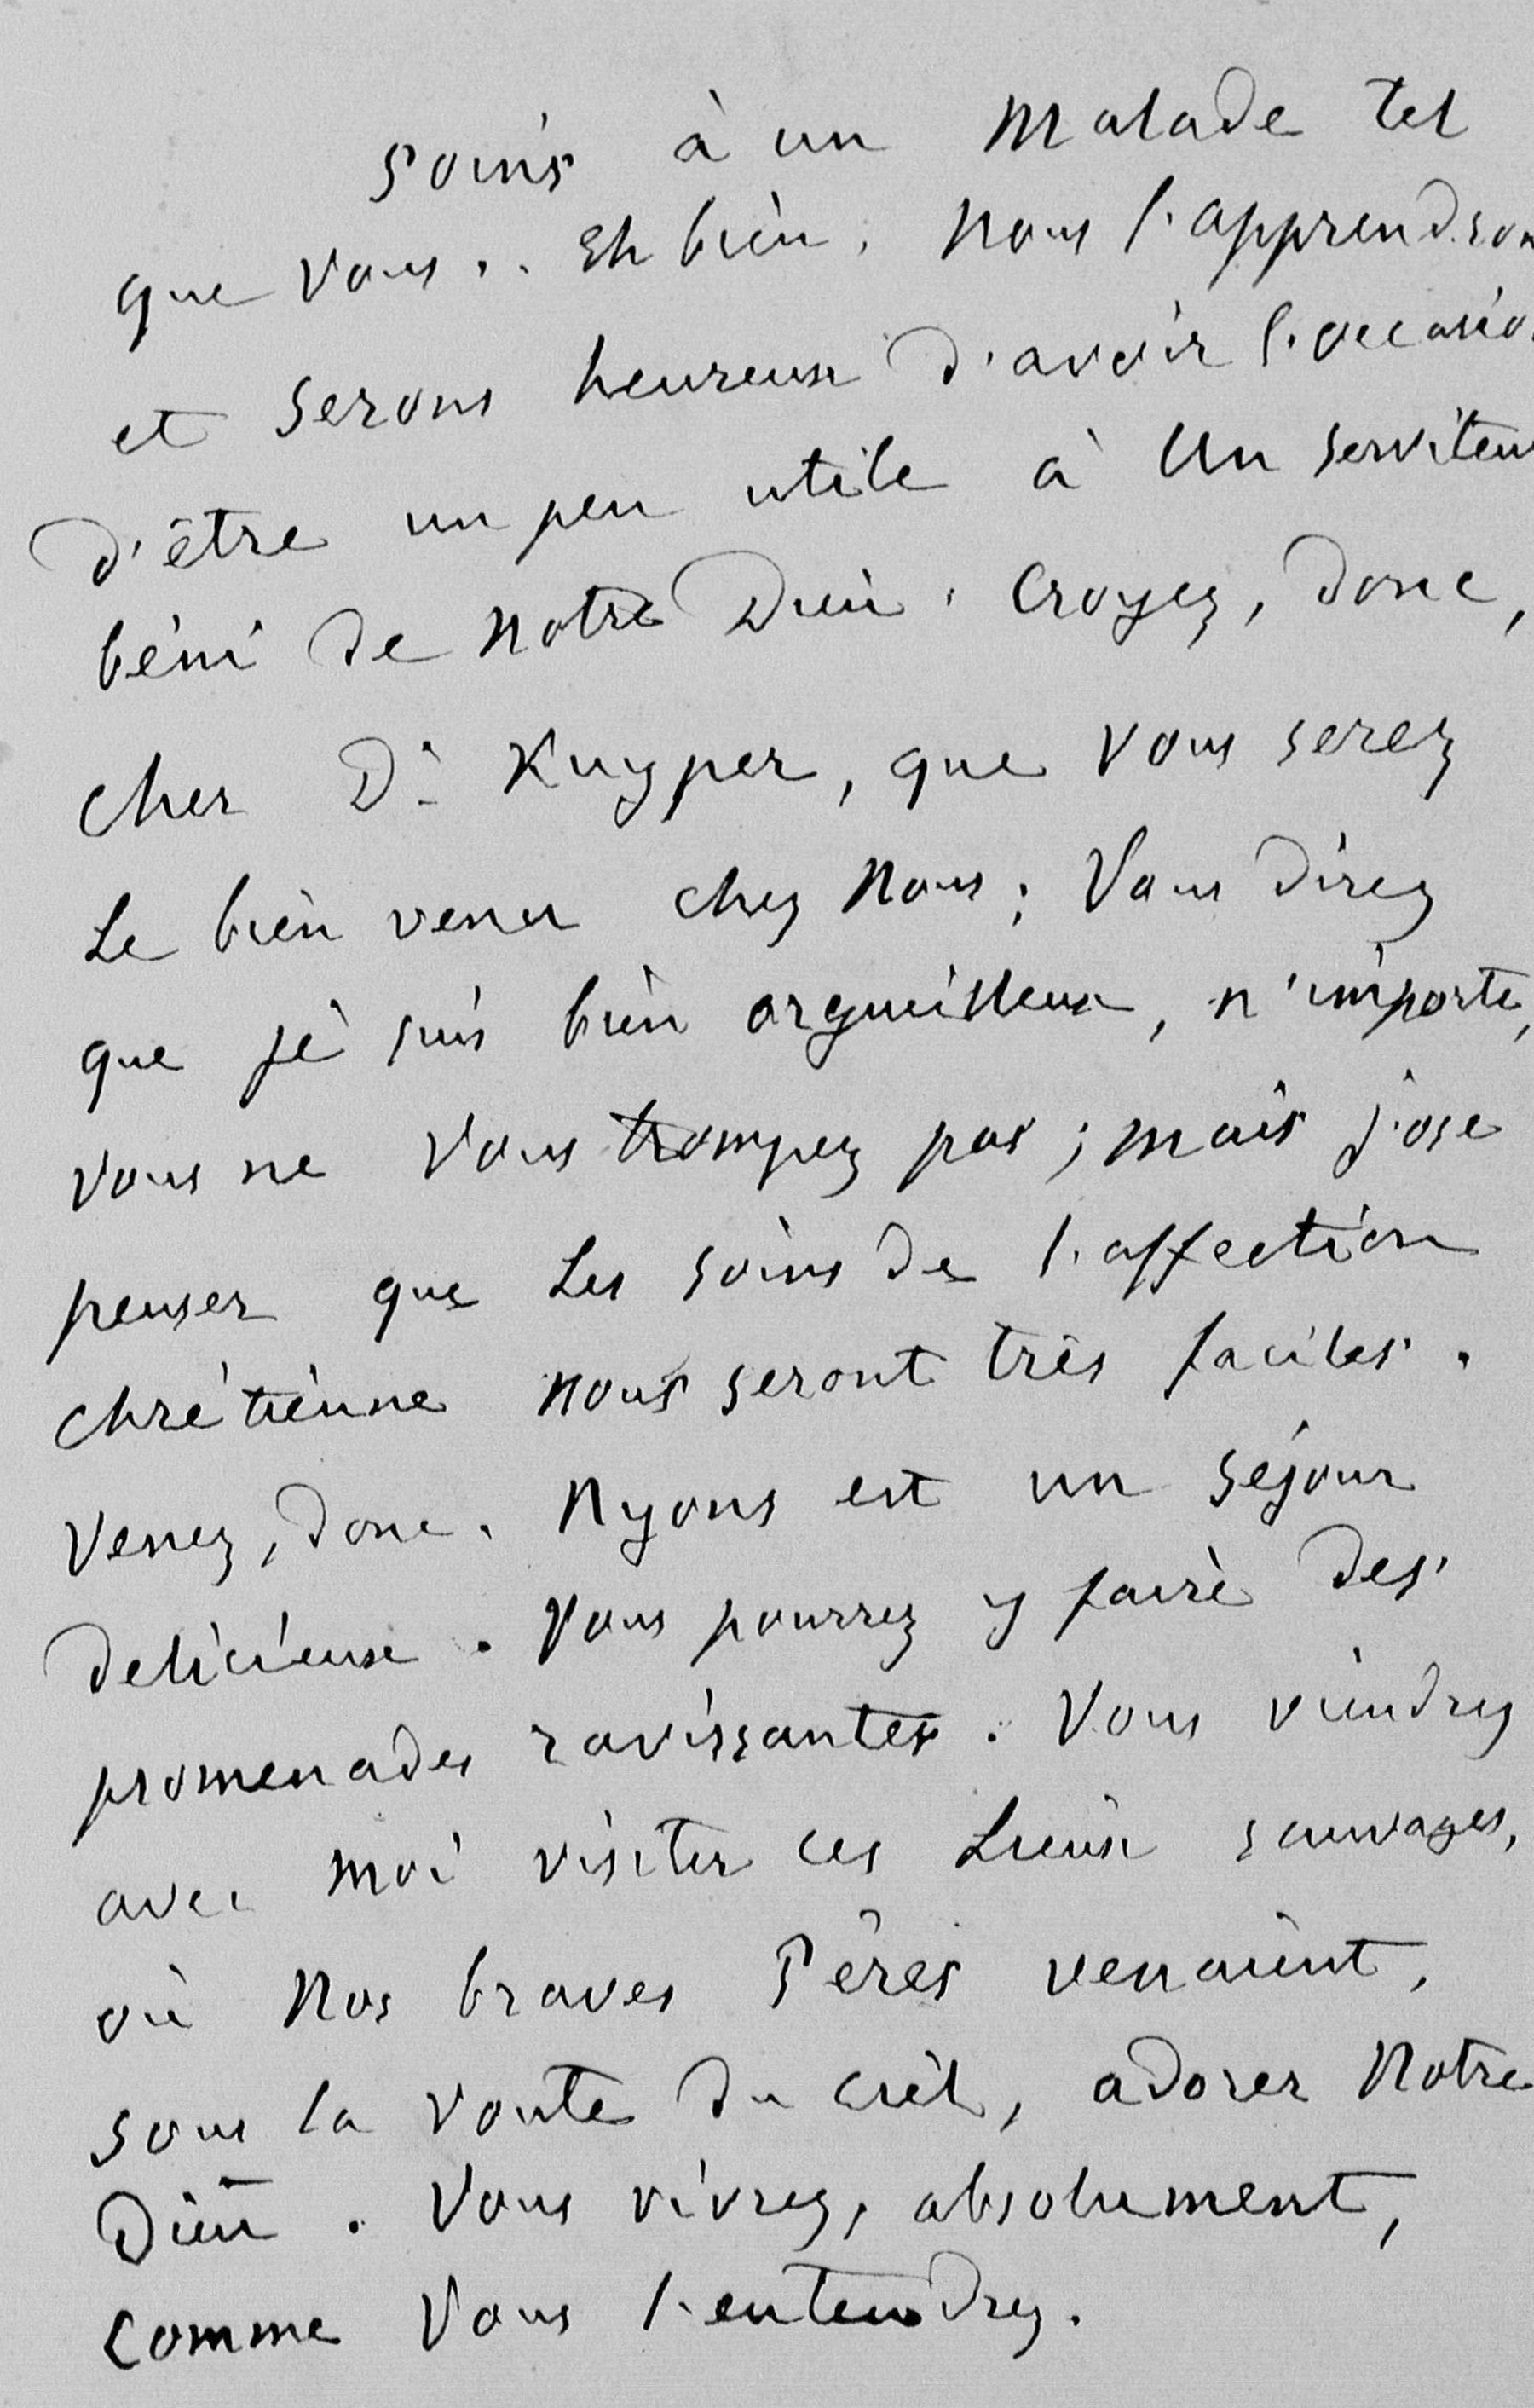 soins à un malade tel
que vous.. Eh bien, nous l'apprendron
et serons heureux d'avoir l'occasio
d'être un peu utile à un serviteur
béni de notre Dieu. Croyez, donc,
cher Dr Kuyper, que vous serez
le bien venu chez nous; vous direz
que je suis bien orgueilleux, n'importe,
vous ne vous trompez pas; mais j'ose
penser que les soins de l'affection
chrétienne nous seront très faciles.
Venez, donc. Nyons est un séjour
delicieux. Vous pourrez y faire des
promenades ravissantes. Vous viendrez
avec moi visiter ces lieux sauvages,
où nos braves Pères venaient,
sous la voute du ciel, adorer notre
Dieu. Vous vivrez, absolument,
comme vous l'entendrez.